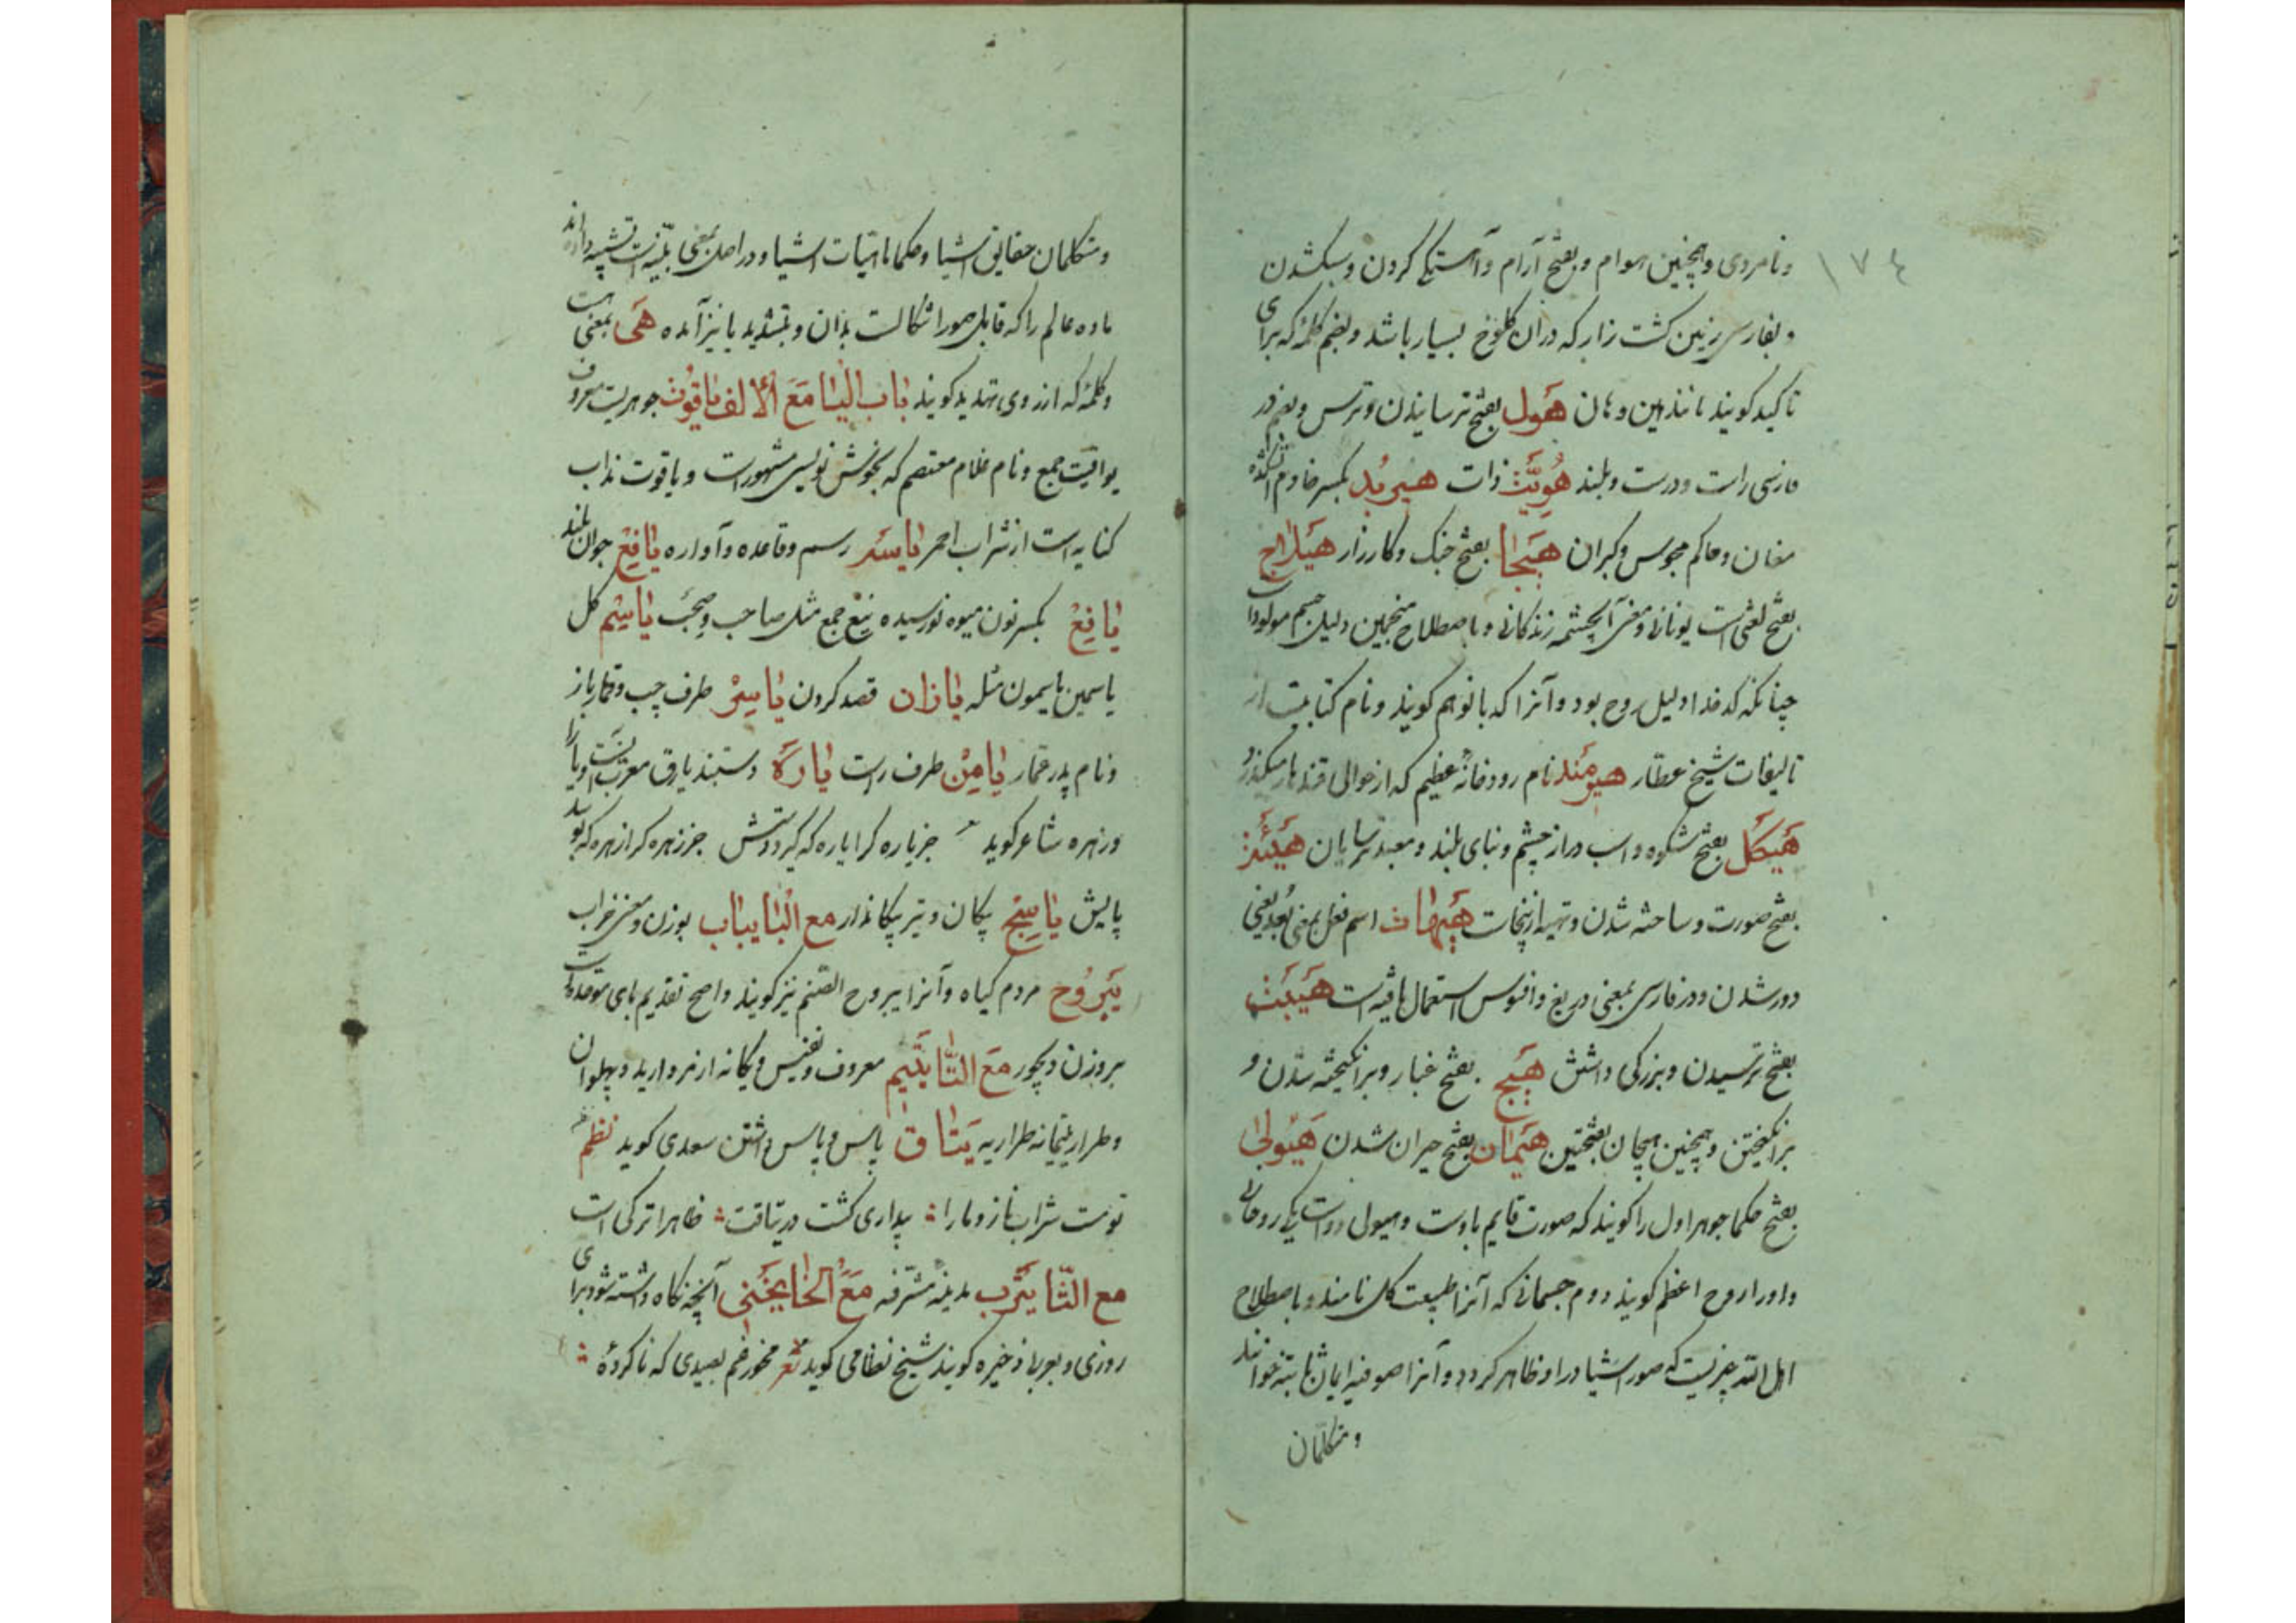 ١٧٤
ونامردی وهمچنین هوام وبفتح آرام وآهستگی کردن وسبکشدن
وبفارسی زمین کشت زار که دران کلوخ بسیار باشد وبضم کلمهٔ که برای
تاکید کویند مانند هین وهان هَول بفتح ترسانیدن وترس وبضم در
فارسی راست ودرست وبلند هُوِیَّت ذات هیربُد بکسر خادم آتشکده
مغان وحاکم مجوس وکبران هَیجا بفتح جنک وکارزار هَیلاج
بفتح لغتی است یونانی ومعنی آن چشمه زندکانی وباصطلاح منجمین دلیل جسم مولود است
چنانکه کدخدا دلیل روح بود وآنرا کدبانو هم کویند ونام کتابیست از
تالیفات شیخ عطار هیرمَند نام رودخانهٔ عظیم که از حوالی قندهار میکذرد
هَیکَل بفتح شکوه واسب دراز چشم وبنای بلند ومعبد ترسایان هَیئَت
بفتح صورت وساخته شدن وتهیه ازینجاست هَیهات اسم فعل بمعنی بَعُدَ یعنی
دور شدن ودر فارسی بمعنی دریغ وافسوس استعمال یافته است هَیبَت
بفتح ترسیدن وبزرکی داشتن هَیج بفتح غبار وبرانکیخته شدن و
برانکیختن وهمچنین هیجان بفتحتین هَیَمان بفتح حیران شدن هَیولی
بفتح حکما جوهر اول را کویند که صورت قایم باوست وهیولی دو است یکی روحانی
واورا روح اعظم کویند دوم جسمانی که آنرا طبیعت کل نامند وباصطلاح
اهل الله چیزیست که صور اشیا در او ظاهر کردد وآنرا صوفیه اعیان ثابته خوانند
ومتکلمان
ومتکلمان حقایق اشیا وحکما ماهیات اشیا ودر اصل بمعنی پنبه است تشبیه داده اند
ماده عالم را که قابل صور اشکالست بدان وبتشدید یا نیز آمده هَی بمعنی هست
وکلمهٔ که از روی تهدید کویند باب الیا مَعَ الالف یاقُوت جوهریست معروف
یواقیت جمع ونام غلام معتصم که بخوش نویسی مشهور است ویاقوت مذاب
کنایه است از شراب احمر یاسَه رسم وقاعده وآواره یافِعْ جوان بلند
یانِعْ بکسر نون میوه نورسیده ینع جمع مثل صاحب وصحب یاسِم کل
یاسمین یاسمون مثله یازان قصد کردن یاسِرْ طرف چپ وقمارباز
ونام پدر عمار یامِنْ طرف راست یارَه دستبند یارق معرب اوست ویارا
وزهره شاعر کوید جز یاره کرا یاره که کرد دستش جز زهره کرا زهره که بوسد
پایش یاسِج پیکان وتیر پیکاندار مع البا یباب بوزن ومعنی خراب
یَبرُوح مردم کیاه وآنرا یبروح الصنم نیز کویند واصح تقدیم بای موحده است
بروزن دیجور مَعَ التّا یَتیم معروف ونفیس ویکانه از مروارید وپهلوان
وطرار یتیمانه طراریه یَتاق پاس وپاس داشتن سعدی کوید نظم
تو مست شراب ناز وما را بیداری کشت در یتاقت ظاهرا ترکی است
مع الثّا یَثرِب مدینه مشرفه مَعَ الخا یَخنی آنچه نکاه داشته شود برای
روزی وبعربی ذخیره کویند شیخ نظامی کوید شعر مخور غم بصیدی که ناکردهٔ